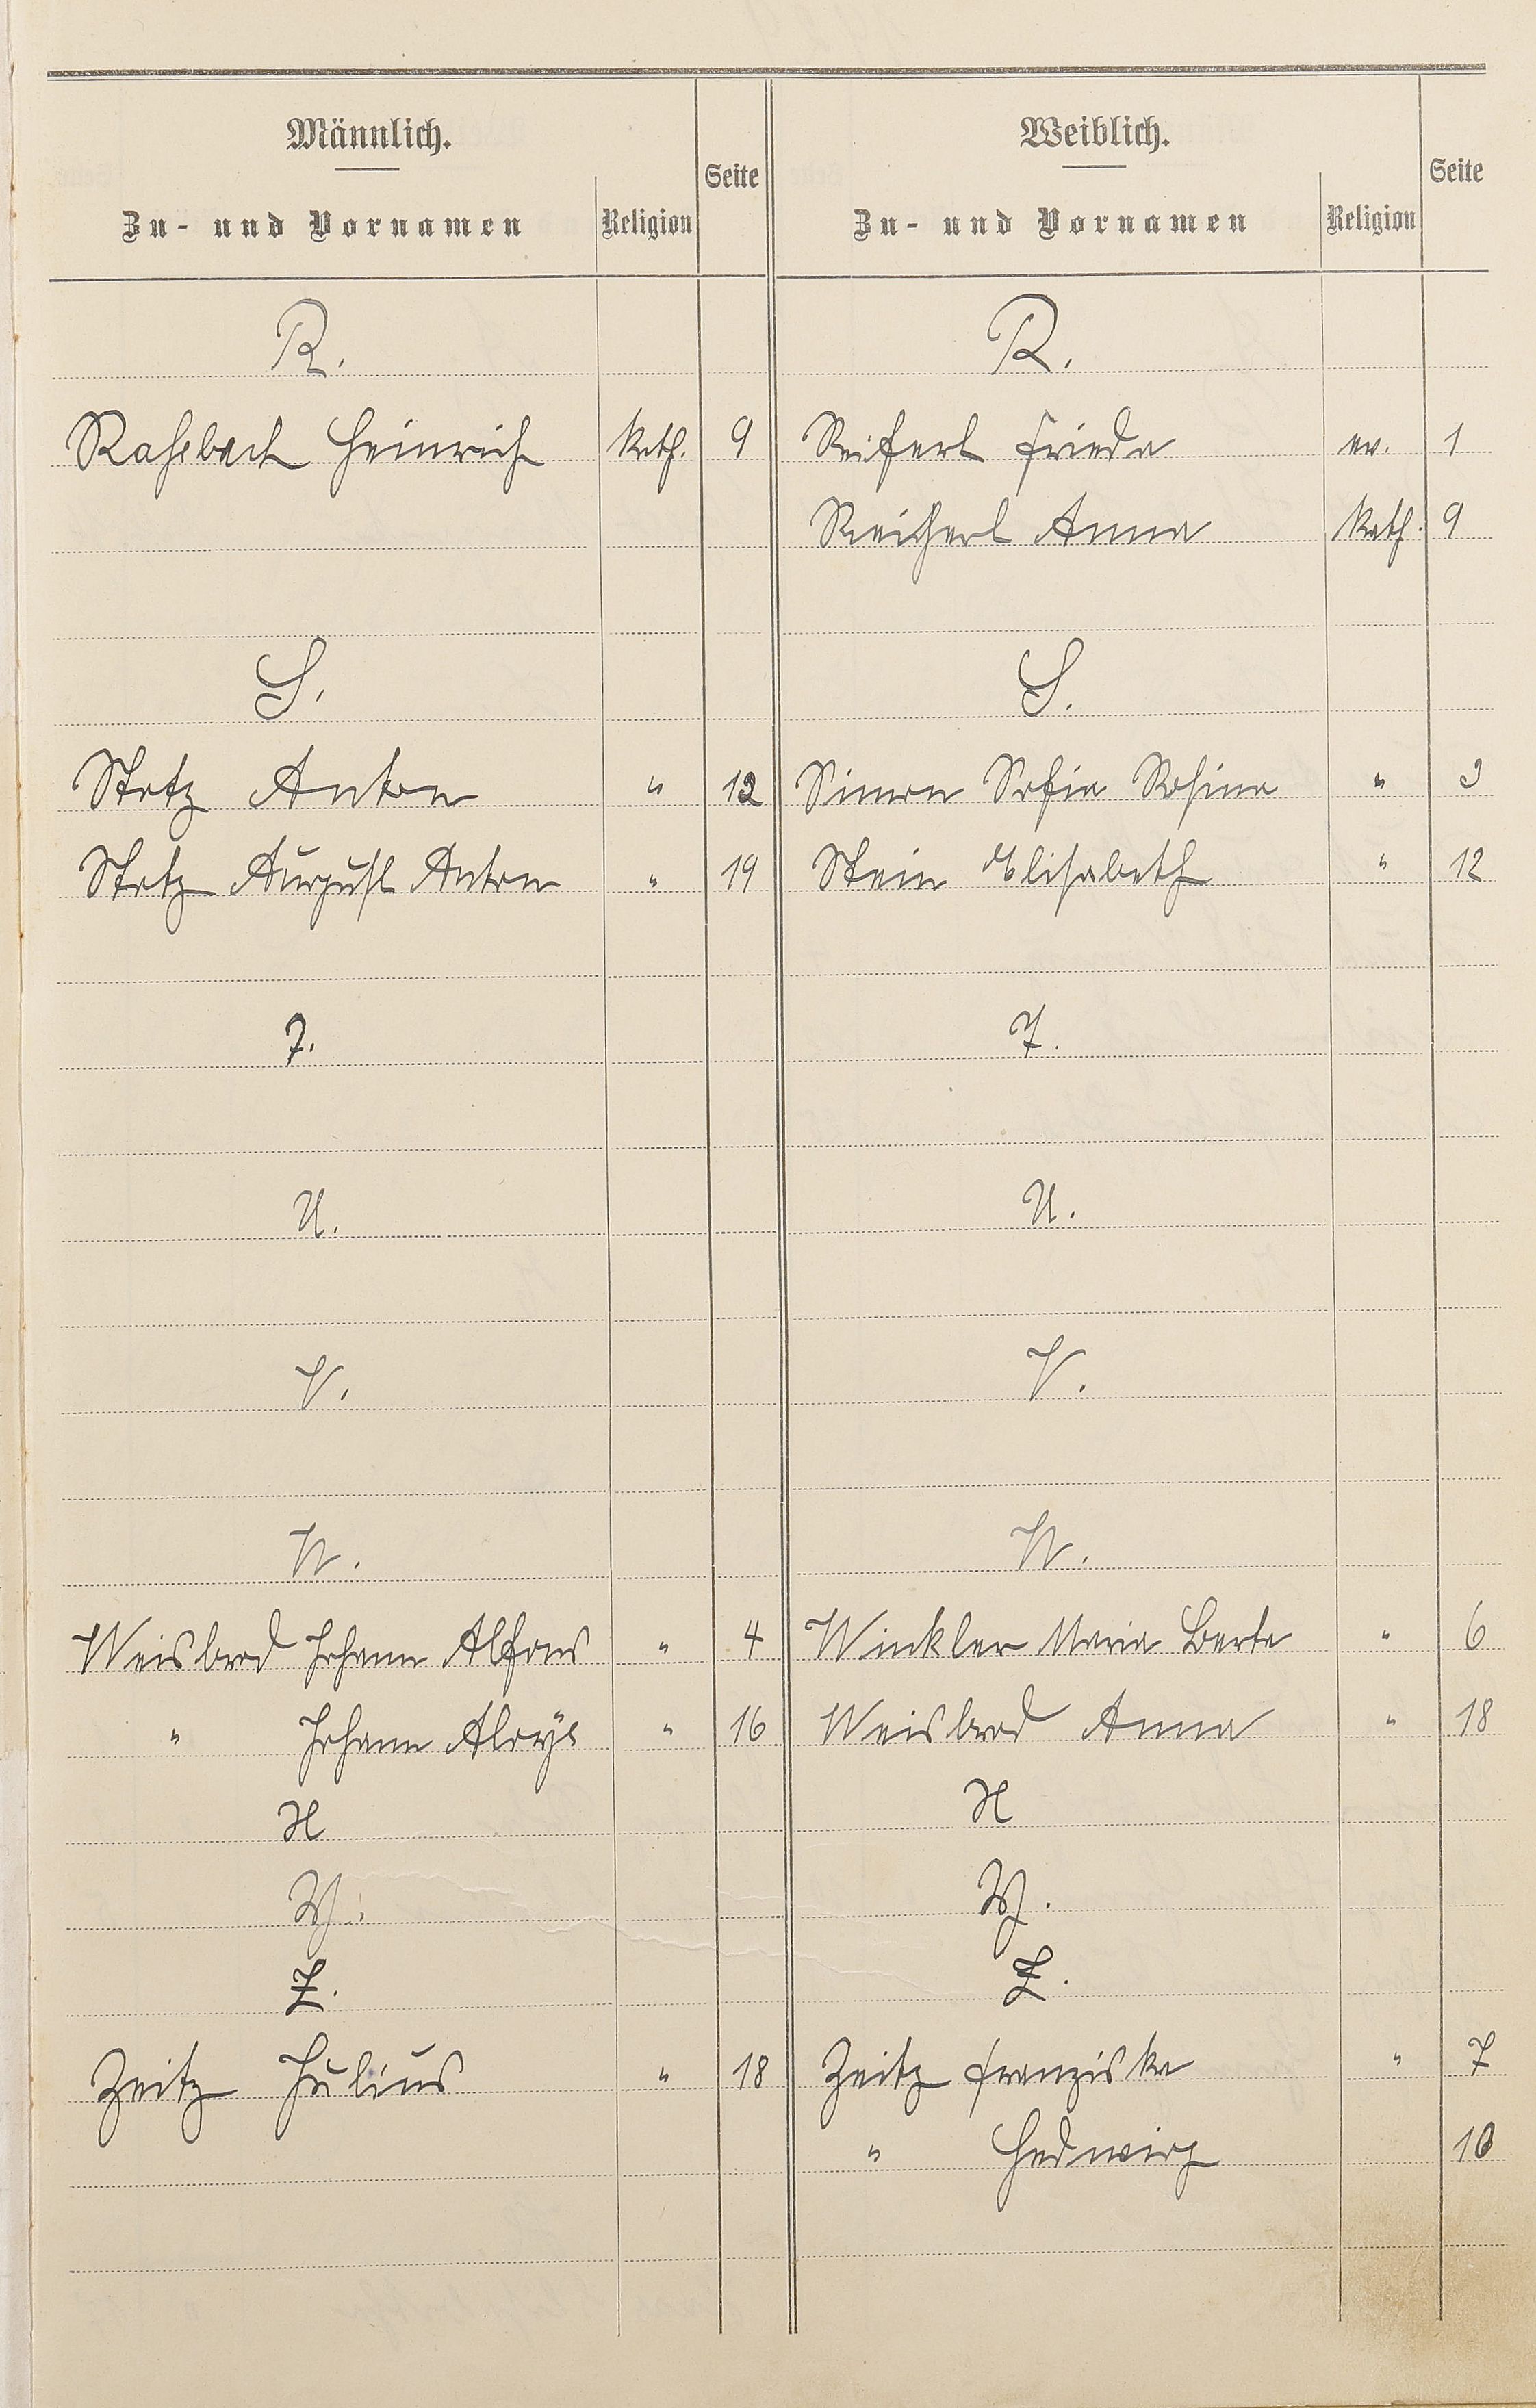 Männlich.
Zu- und Vornamen Religion Seite
R.
Kath. 9
S.
Stotz Anton " 12
Stotz August Anton " 19
T.
U.
V.
W.
Weisbrod Johann Alfons " 4
" Johann Aloys " 16
X
Y.
Z.
Zeitz Julius " 18
Weiblich.
Zu- und Vornamen Religion Seite
R.
Frieda ev. 1
Anna Kath. 9
S.
Simon Sofia Rosina " 3
Stein Elisabeth " 12
T.
U.
V.
W.
Winkler Maria Berta " 6
Weisbrod Anna " 18
X
Y.
Z.
Zeitz Franziska " 7
" Hedwig